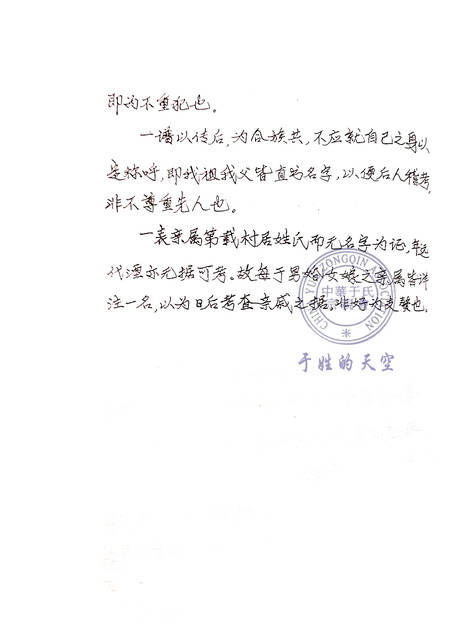 即为不重犯也。
一谱以传后，为合族共，不应就自己之身以
是称呼，即我祖我父皆直写名字，以便后人稽考，
非不尊重先人也。
一表亲属第载村居姓氏而无名字为证，年远
代湮亦无据可考。故每于男婚女嫁之亲属皆详
注一名，以为日后考查亲戚之据。非好为更变也。
CHINA YU ZONGQIN ASSOCIATION
中華于氏
于姓的天空